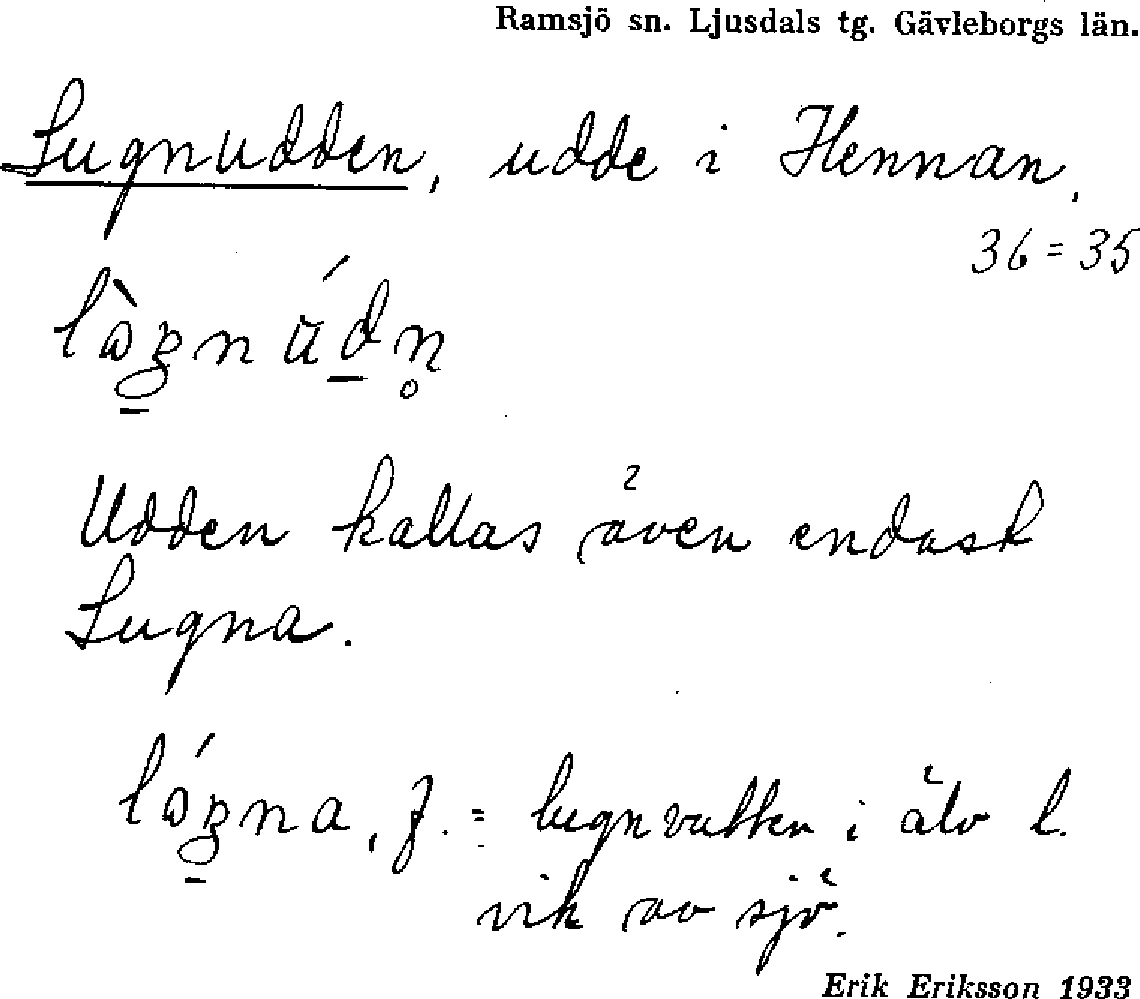 Ramsjö sn. Ljusdals tg. Gävleborgs län.
Lugnudden, udde i Hennan.
36 = 35
Udden kallas även endast
Lugna.
f. = lugnvatten i älv l.
vik av sjö.
Erik Eriksson 1933